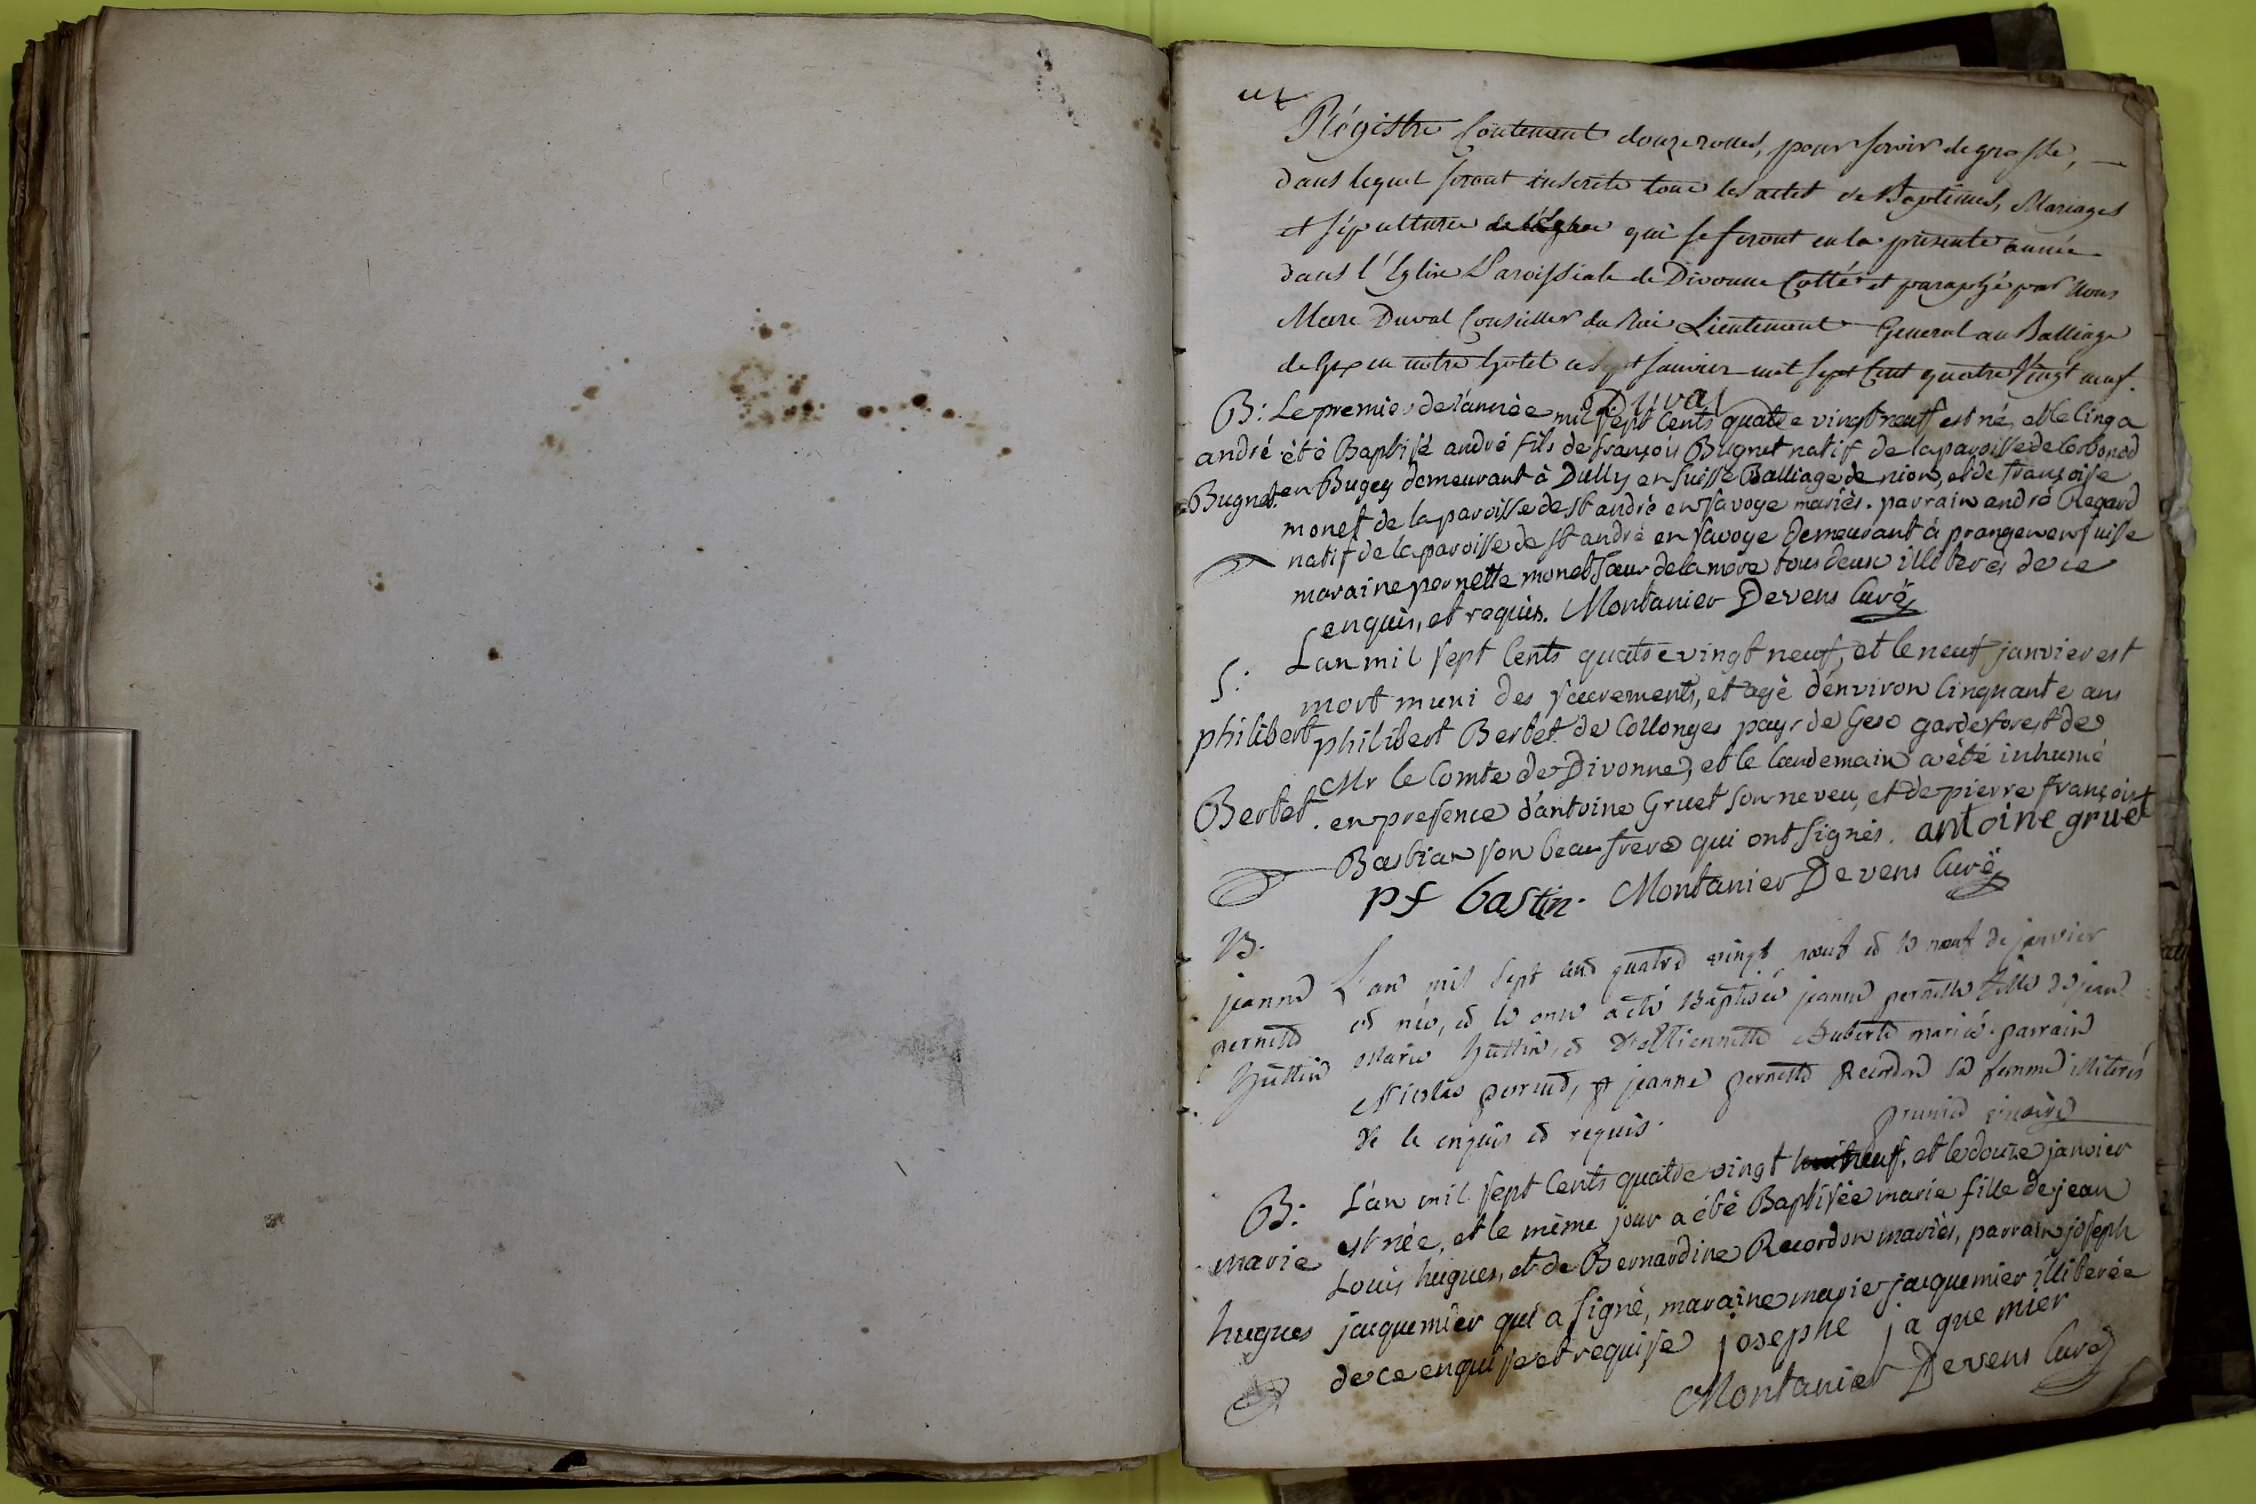 Régistre Contenant douze rolles, pour servir de grosse,
dans lequel seront inscrits tous les actes de Baptêmes, Mariages
et sépultures qui se feront en la présente année
dans l'Eglise Paroissiale de Divonne Cotté et paraphé par Nous
Marc Duval Conseiller du Roi Lieutenant General au Balliage
de Gex en notre hotel ce sept Janvier mil sept Cent quatre Vingt neuf.
Duval
B: Le premier de l'année mil sept Cents quatre vingt neuf est né, et le Cinq a
andré été Baptisé andré fils de françois Bugnet natif de la paroisse de Corbonod
Bugnet. en Bugey demeurant à Dully en Suisse Balliage de nion, et de françoise
monet de la paroisse de st andré en savoye mariés. parrain andré Regard
natif de la paroisse de st andré en savoye Demeurant à prangen en suisse
maraine pernette monet sœur de la mere tous deux illiterés de ce
enquis, et requis. Montanier Devens Curé
S: L'an mil sept Cents quatre vingt neuf, et le neuf janvier est
mort muni des sacrements, et agé d'environ Cinquante ans
philibert philibert Bertet de Collonges pays de Gex garde forest de
Mr le Comte de Divonne, et le laudemain a été inhumé
Bertet. en presence d'antoine Gruet son neveu, et de pierre françois
Bastian son beau frere qui ont signés. antoine gruet
pf bastin. Montanier Devens Curé
B.
jeanne L'an mil sept cens quatre vingt neuf et le neuf de janvier
pernette est née, et le onze a eté Baptisée jeanne pernette fille de jean
huttin Marie huttin, et d'Estiennette huberte mariés. parrain
Nicolas perrud, et jeanne pernette Recordon sa femme illiterés
de le enquis et requis. prunier vicaire
B: L'an mil sept Cents quatre vingt neuf, et le douze janvier
est née, et le même jour a été Baptisée marie fille de jean
marie Louis hugues, et de Bernardine Recordon mariés, parrain joseph
hugues jacquemier qui a signé, maraine marie jacquemier illiterée
de ce enquise et requise josephe jaquemier
Montanier Devens Curé